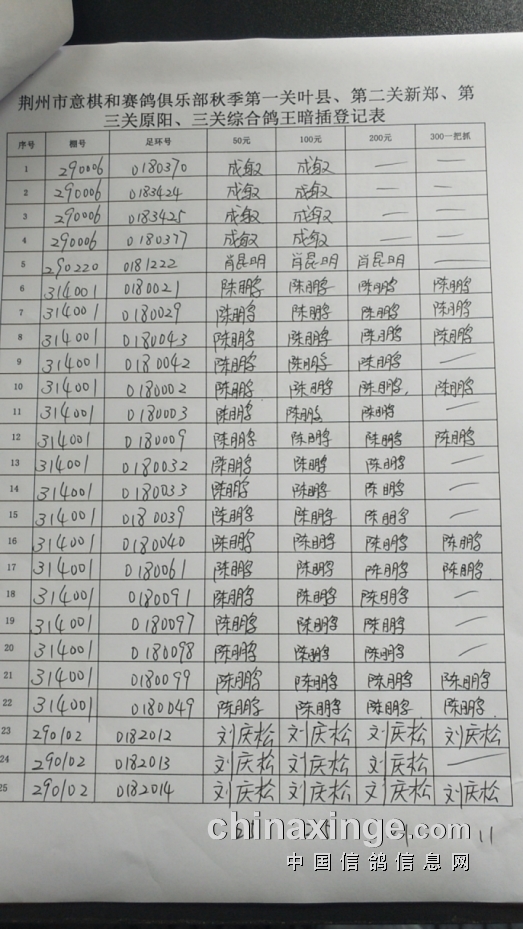 荆州市意棋和赛鸽俱乐部秋季第一关叶县、第二关新郑、第
三关原阳、三关综合鸽王暗插登记表
序号 棚号 足环号 50元 100元 200元 300一把抓
1 290006 0180370 成敏 成敏 — —
2 290006 0183424 成敏 成敏 — —
3 290006 0183425 成敏 成敏 — —
4 290006 0180377 成敏 成敏 — —
5 290220 0181222 肖昆明 肖昆明 肖昆明 —
6 314001 0180021 陈鹏 陈鹏 陈鹏 陈鹏
7 314001 0180029 陈鹏 陈鹏 陈鹏 陈鹏
8 314001 0180043 陈鹏 陈鹏 陈鹏 陈鹏
9 314001 0180042 陈鹏 陈鹏 陈鹏 —
10 314001 0180002 陈鹏 陈鹏 陈鹏 陈鹏
11 314001 0180003 陈鹏 陈鹏 陈鹏 —
12 314001 0180009 陈鹏 陈鹏 陈鹏 陈鹏
13 314001 0180032 陈鹏 陈鹏 陈鹏 —
14 314001 0180033 陈鹏 陈鹏 陈鹏 —
15 314001 0180039 陈鹏 陈鹏 陈鹏 —
16 314001 0180040 陈鹏 陈鹏 陈鹏 陈鹏
17 314001 0180061 陈鹏 陈鹏 陈鹏 陈鹏
18 314001 0180091 陈鹏 陈鹏 陈鹏 —
19 314001 0180097 陈鹏 陈鹏 陈鹏 —
20 314001 0180098 陈鹏 陈鹏 陈鹏 —
21 314001 0180099 陈鹏 陈鹏 陈鹏 陈鹏
22 314001 0180049 陈鹏 陈鹏 陈鹏 陈鹏
23 290102 0182012 刘庆松 刘庆松 刘庆松 刘庆松
24 290102 0182013 刘庆松 刘庆松 刘庆松 —
25 290102 0182014 刘庆松 刘庆松 刘庆松 刘庆松
11
chinaxinge.com
中国信鸽信息网